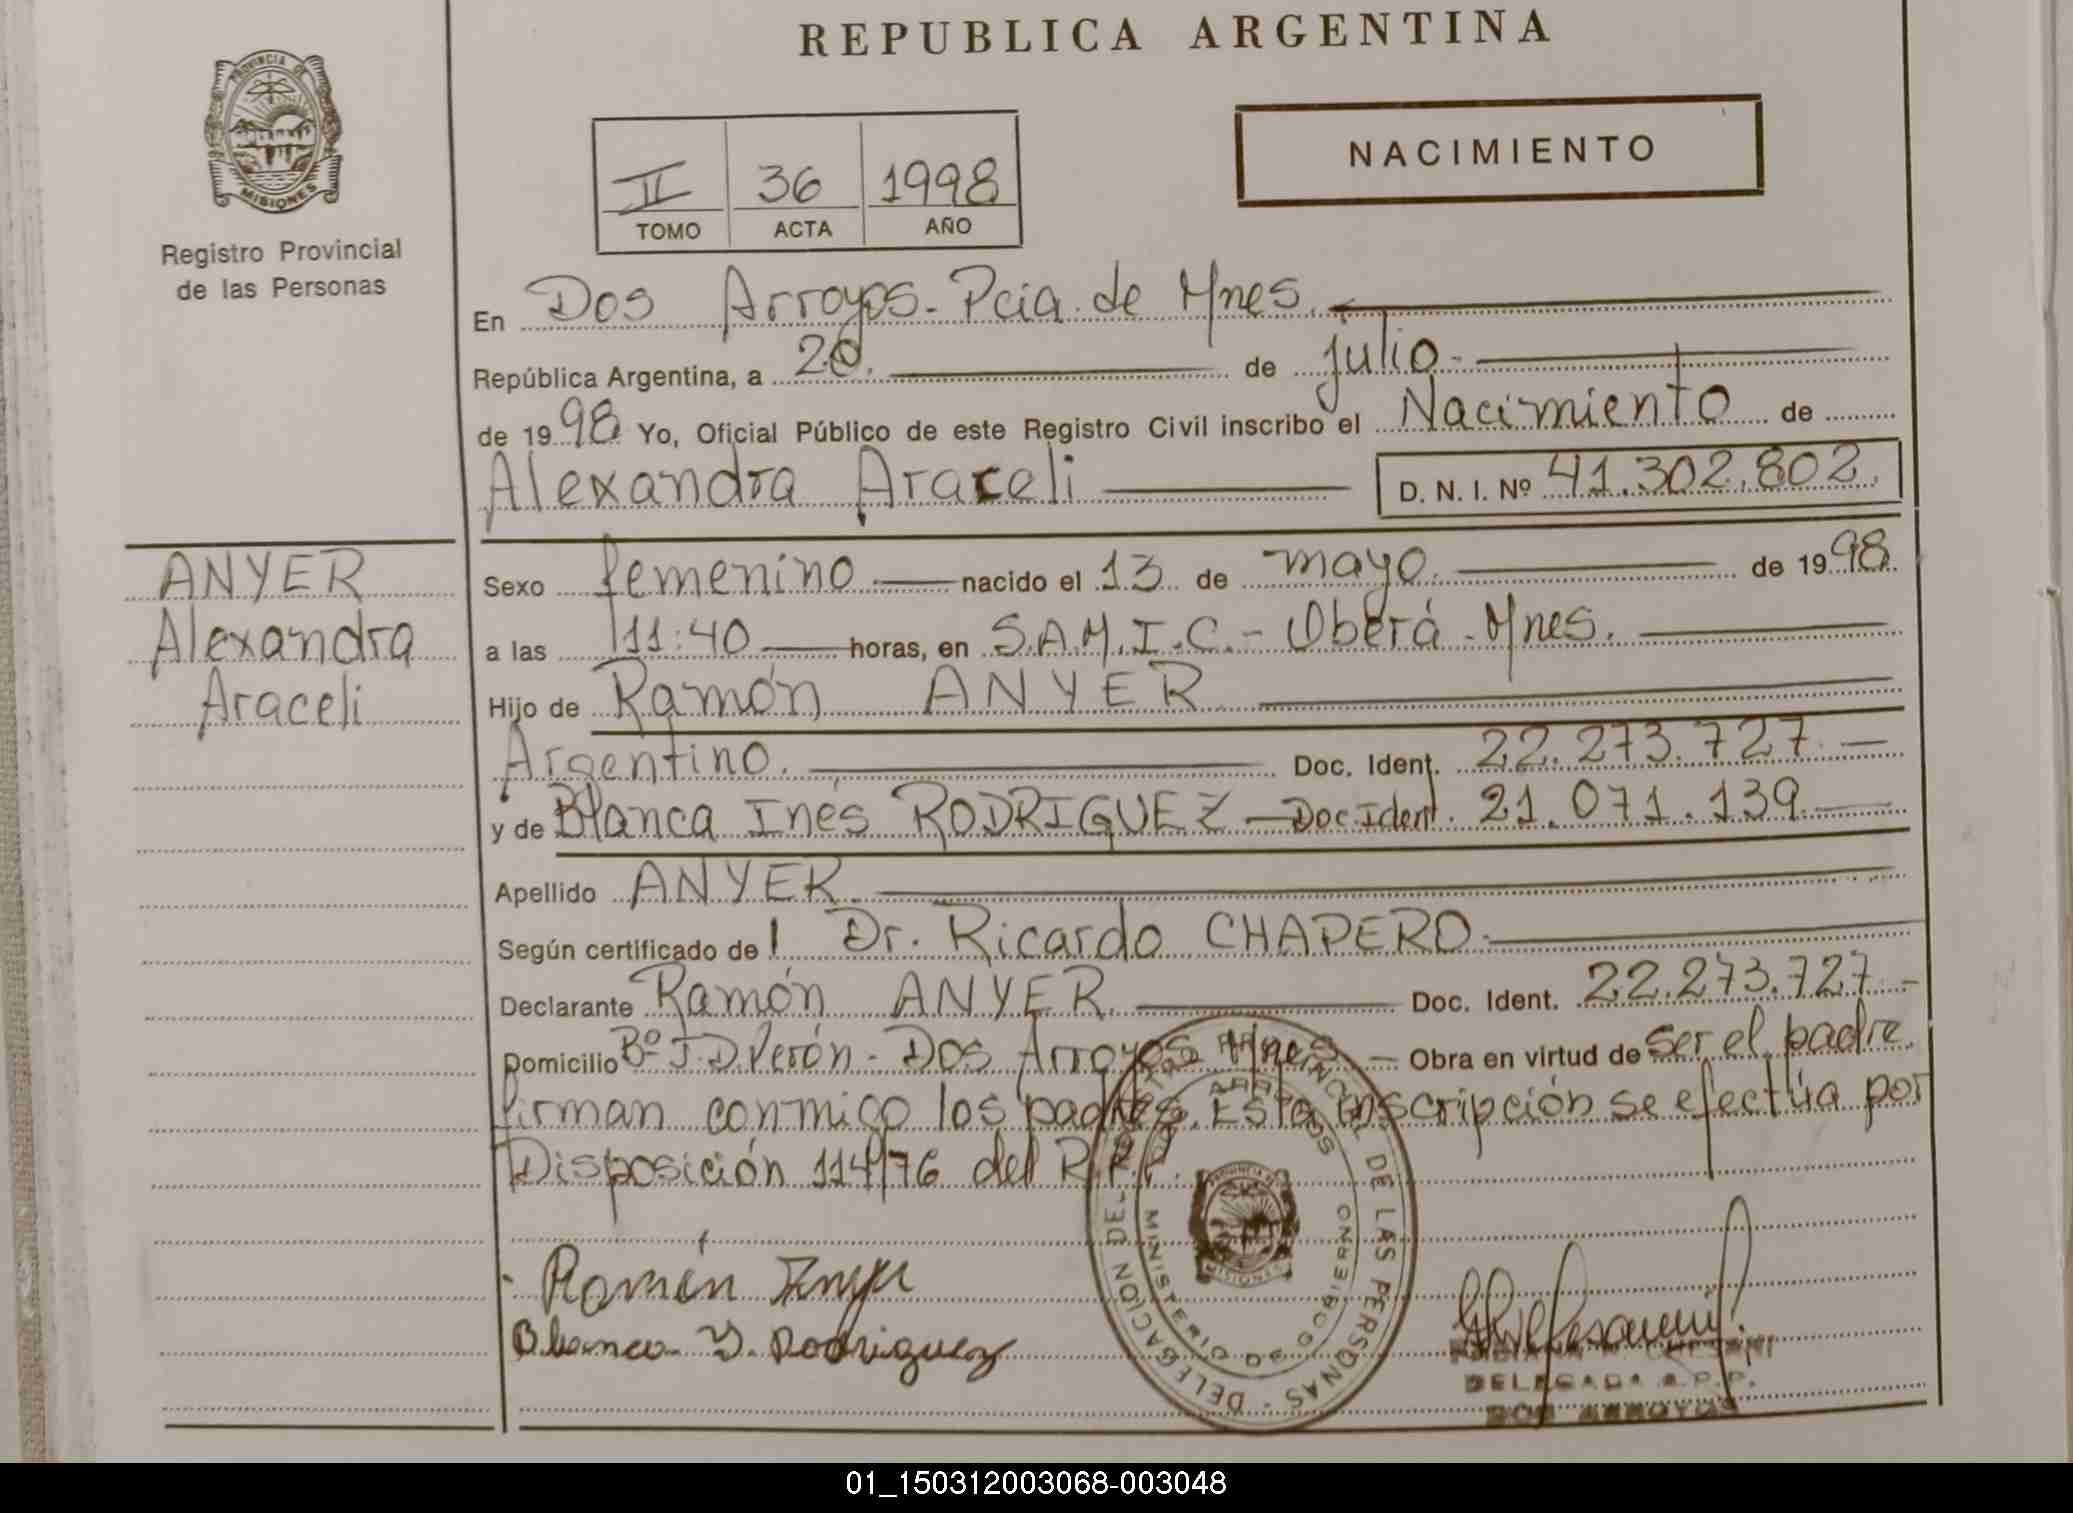 REPUBLICA ARGENTINA
PROVINCIA DE
MISIONES
Registro Provincial
de las Personas
NACIMIENTO
II 36 1998
TOMO ACTA AÑO
En Dos Arroyos - Pcia. de Mnes.
República Argentina, a 20. de julio.-
de 1998 Yo, Oficial Público de este Registro Civil inscribo el Nacimiento de
Alexandra Araceli D. N. I. Nº 41.302.802.
ANYER
Alexandra
Araceli
Sexo femenino nacido el 13 de mayo. de 1998.
a las 11:40 horas, en S.A.M.I.C.- Oberá - Mnes.
Hijo de Ramón ANYER
Argentino. Doc. Ident. 22.273.727.-
y de Blanca Inés RODRIGUEZ - Doc. Ident. 21.071.139.
Apellido ANYER.
Según certificado del Dr. Ricardo CHAPERO.
Declarante Ramón ANYER. Doc. Ident. 22.273.727.-
Domicilio Bº J.D. Perón - Dos Arroyos Mnes. - Obra en virtud de ser el padre.
firman conmigo los padres. Esta inscripción se efectúa por
Disposición 114/76 del R.P.P.
Ramón Anyer
Blanca I. Rodriguez
DE LAS PERSONAS - DELEGACIÓN DEL
MINISTERIO DE GOBIERNO
MISIONES
DELEGADA R.P.P.
DOS ARROYOS
01_150312003068-003048